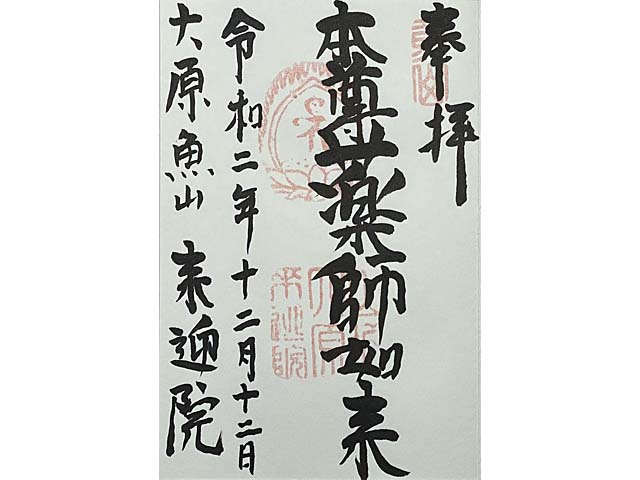 奉拝
本尊薬師如来
令和二年十二月十二日
大原魚山 来迎院